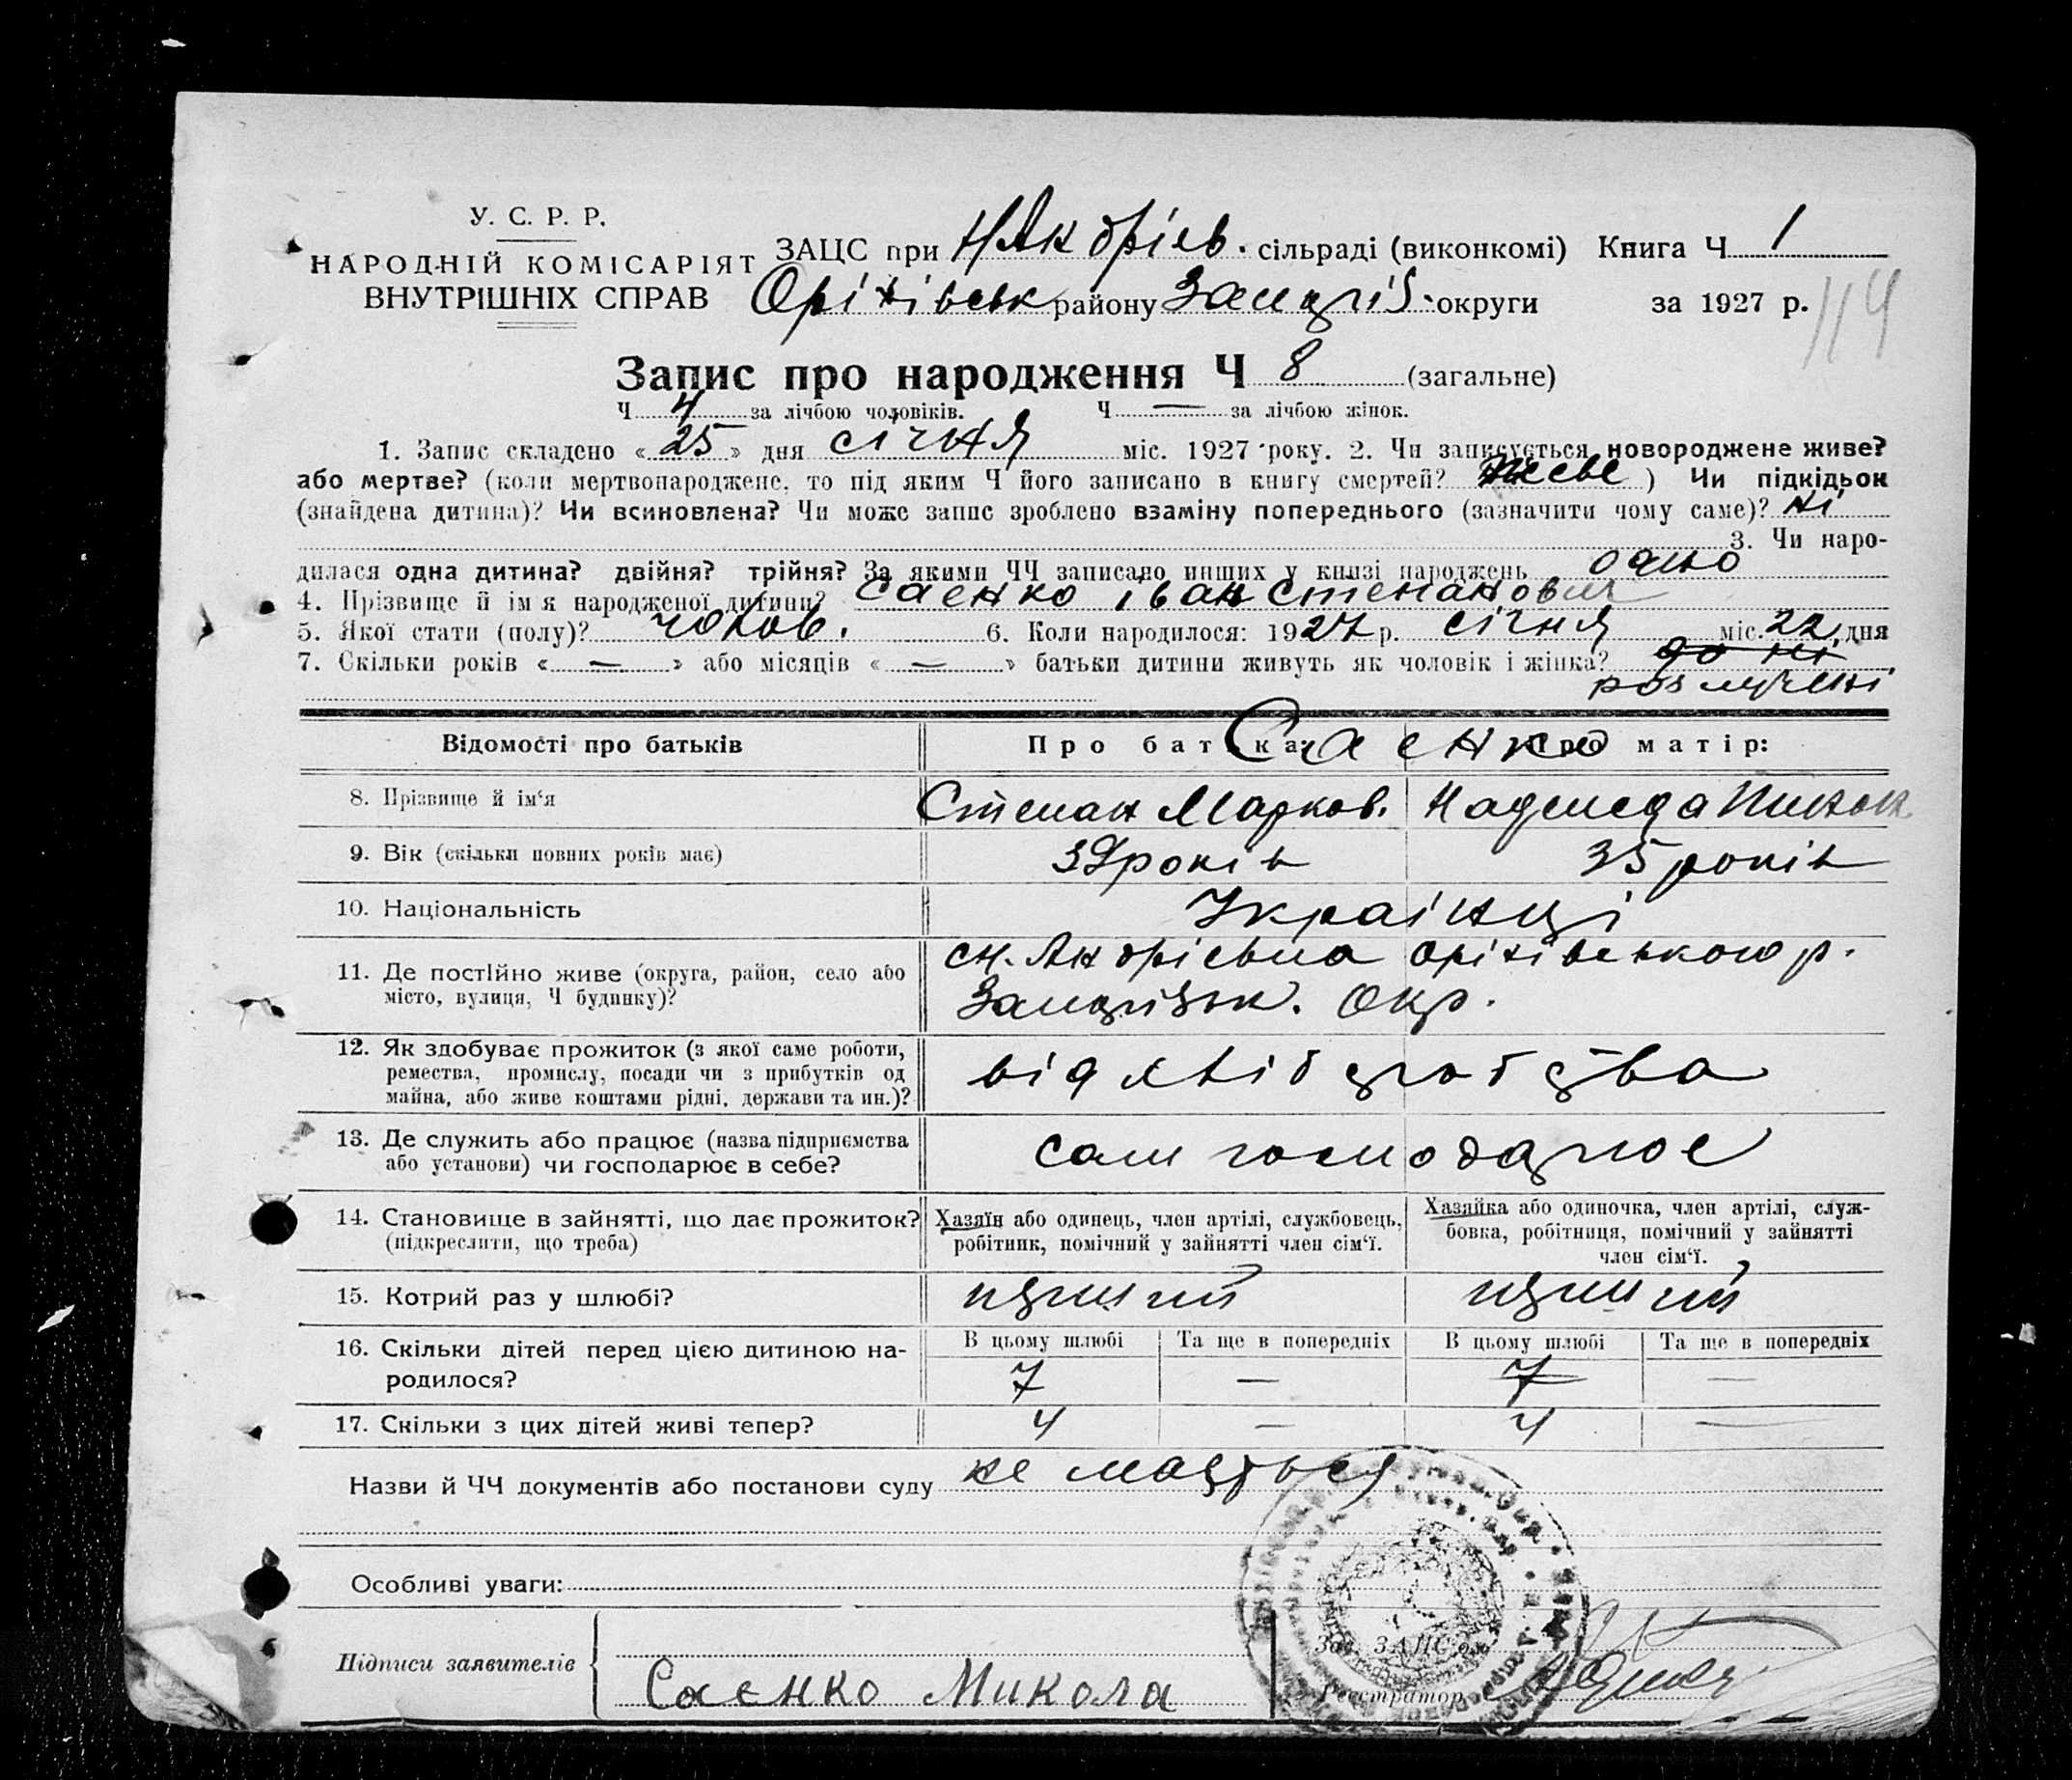 У. С. Р. Р.
НАРОДНІЙ КОМІСАРІЯТ
ВНУТРІШНІХ СПРАВ
ЗАЦС при сільраді (виконкомі) Книга Ч 1
Оріхівськ району округи за 1927 р. 114
Запис про народження Ч 8 (загальне)
Ч 4 за лічбою чоловіків. Ч — за лічбою жінок.
1. Запис складено « 25 » дня січня міс. 1927 року. 2. Чи записується новороджене живе?
або мертве? (коли мертвонароджене, то під яким Ч його записано в книгу смертей? живе ) Чи підкідьок
(знайдена дитина)? Чи всиновлена? Чи може запис зроблено взаміну попереднього (зазначити чому саме)? ні
3. Чи наро-
дилася одна дитина? двійня? трійня? За якими ЧЧ записано инших у книзі народжень одно
4. Прізвище й ім'я народженої дитини? Саєнко Іван Степанович
5. Якої стати (полу)? чолов. 6. Коли народилося: 1927 р. січня міс. 22 дня
7. Скільки років « — » або місяців « — » батьки дитини живуть як чоловік і жінка?
розлучені
Відомості про батьків Про батька: Саенко Про матір:
8. Прізвище й ім'я Степан Марков. Надежда
9. Вік (скільки повних років має) 39 років 35 років
10. Національність Українці
11. Де постійно живе (округа, район, село або
місто, вулиця, Ч будинку)?
см. Андрієвка Оріхівського р.
Запоріжськ. Окр.
12. Як здобуває прожиток (з якої саме роботи,
ремества, промислу, посади чи з прибутків од
майна, або живе коштами рідні, держави та ин.)?
від хліборобства
13. Де служить або працює (назва підприємства
або установи) чи господарює в себе?
сам господарює
14. Становище в зайнятті, що дає прожиток?
(підкреслити, що треба)
Хазяїн або одинець, член артілі, службовець,
робітник, помічний у зайнятті член сім'ї.
Хазяйка або одиночка, член артілі, служ-
бовка, робітниця, помічний у зайнятті
член сім'ї.
15. Котрий раз у шлюбі? перший перший
16. Скільки дітей перед цією дитиною на-
родилося?
В цьому шлюбі Та ще в попередніх В цьому шлюбі Та ще в попередніх
7 — 7 —
17. Скільки з цих дітей живі тепер? 4 — 4 —
Назви й ЧЧ документів або постанови суду не мається
Особливі уваги:
Підписи заявителів
Зав. ЗАЦСом
Саєнко Микола
Реєстратор